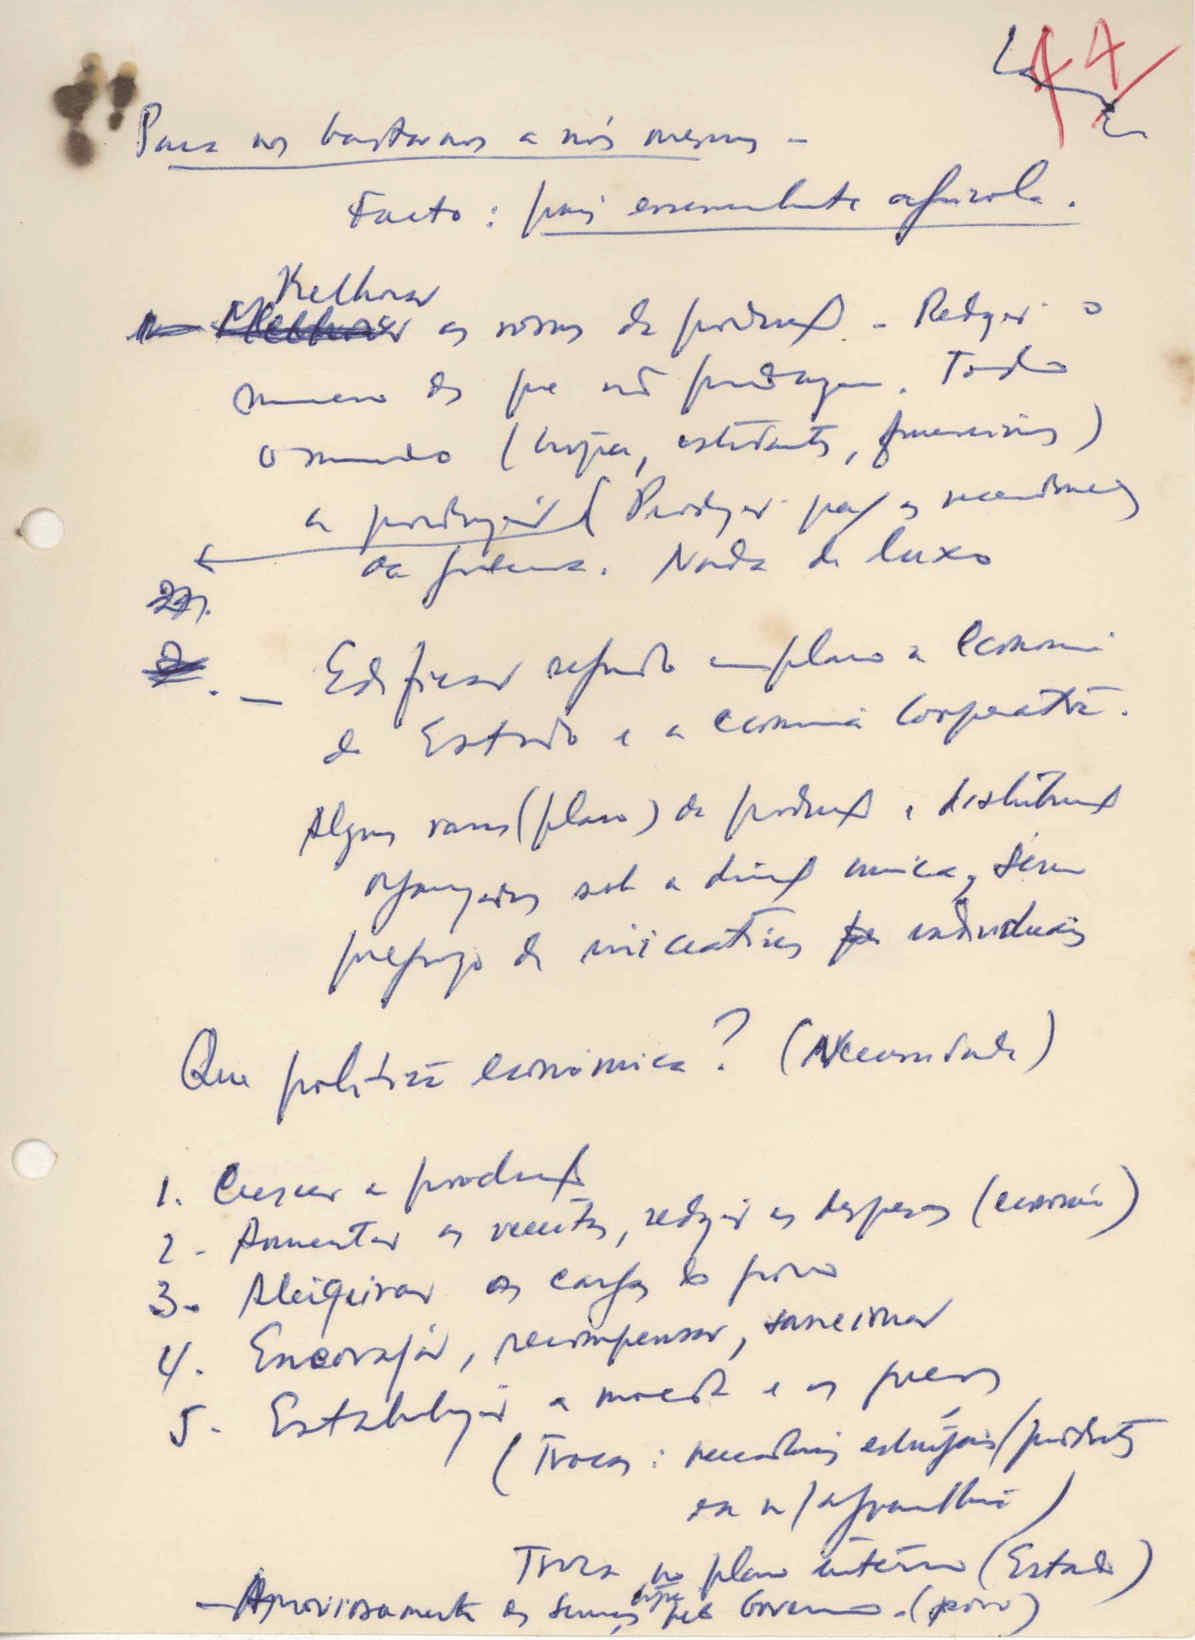 44
Para nos bastarmos a nós mesmos -
Facto: país essencialmente agrícola.
Melhorar
Melhorar os ramos de produção - Reduzir o
numero dos que não produzem. Todo
o mundo (tropa, estudantes, funcionários)
a produzir (Produzir para as necessidades
da guerra. Nada de luxo
2).
2
. — Edificar segundo um plano a economia
de Estado e a economia cooperativa.
Alguns ramos (plano) de produção e distribuição
organizados sob a direção unica, sem
prejuízo de iniciativas individuais
Que política económica? (Necessidade)
1. Crescer a produção
2 - Aumentar as receitas, reduzir as despesas (economia)
3 - Aleigeirar os cargos do povo
4. Encorajar, recompensar, sancionar
5 - Estabilizar a moeda e os preços
(Trocas: mercadorias estrangeiras/produtos
Troca no plano interno (Estado)
- Aprovisionamento os Governo - (povo)